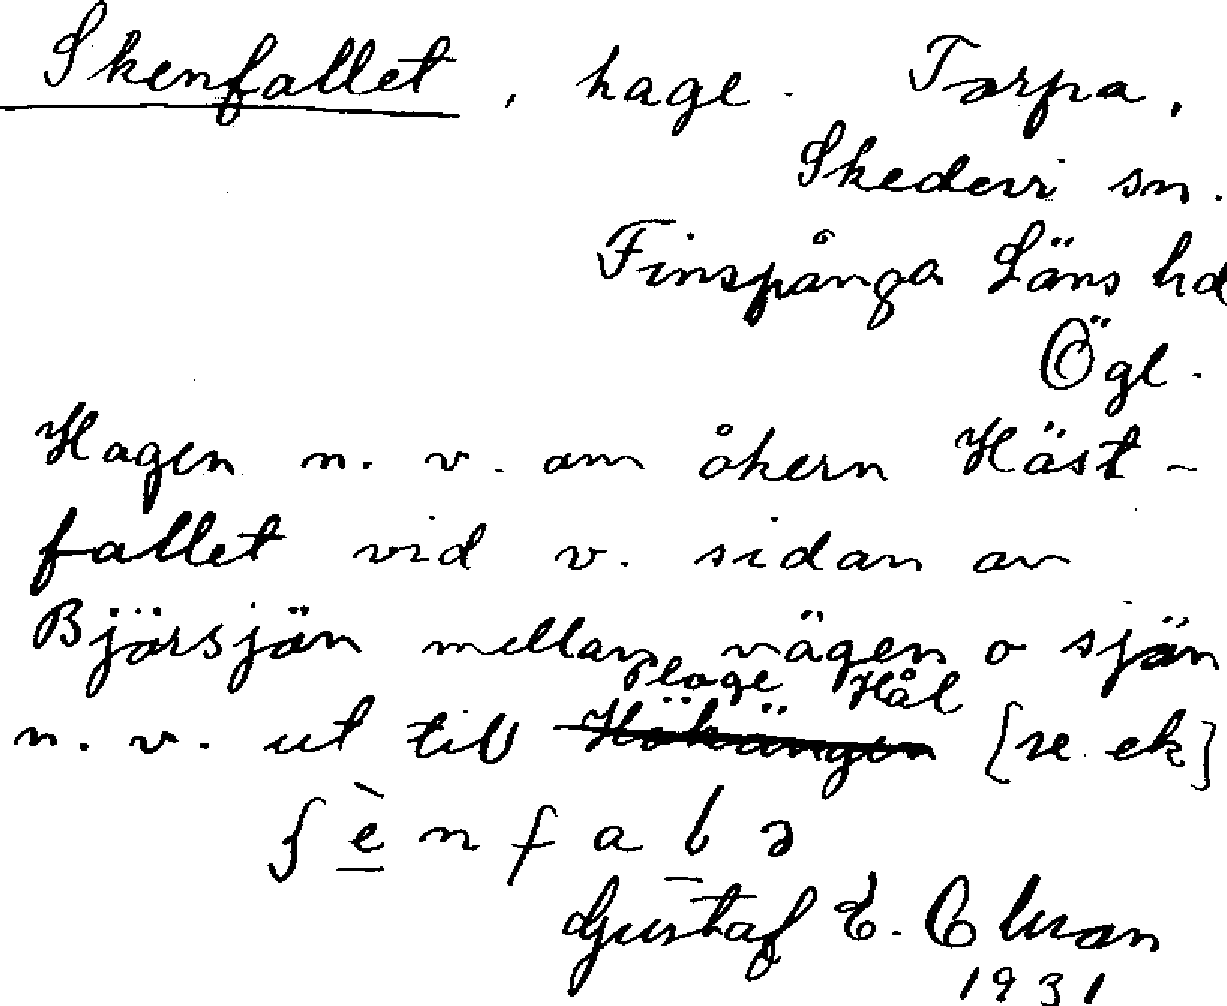 Skenfallet, hage. Torpa,
Skedevi sn.
Finspånga Läns hd
Ögl.
Hagen n. v. om åkern Häst-
fallet vid v. sidan av
Björsjön mellan vägen o sjön
Plogl Hål
n. v. ut till Hökängen [se ek]
ʃ è n f a l ə
Gustaf E.
1931